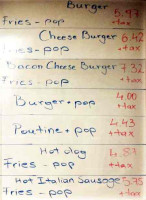 Burger 5.97
Fries - pop +tax
Cheese Burger 6.42
Fries - pop +tax
Bacon Cheese Burger 7.32
Fries - pop +tax
Burger + pop 4.00 +tax
Poutine + pop 4.43 +tax
Hot dog 4.87
Fries - pop +tax
Hot Italian Sausage 5.75
Fries - pop +tax